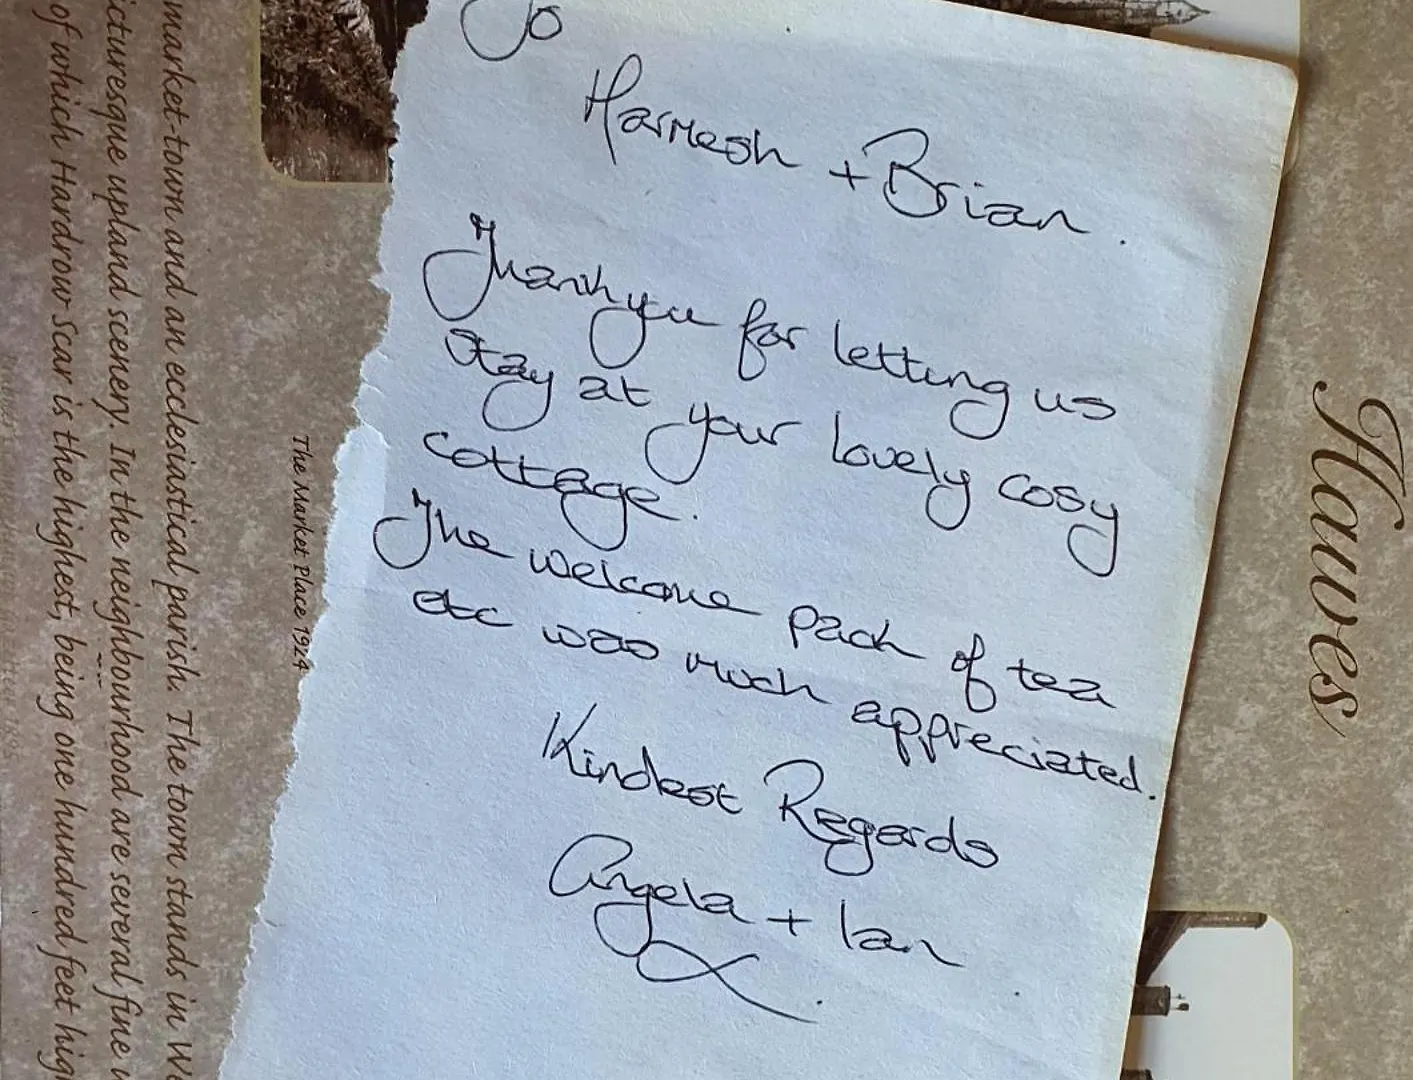 To
Harmesh + Brian.
Thankyou for letting us
stay at your lovely cosy
cottage.
The welcome pack of tea
etc was much appreciated.
Kindest Regards
Angela + Ian
Hawes
The Market Place 1924
market-town and an ecclesiastical parish. The town stands in
icturesque upland scenery. In the neighbourhood are several fine
of which Hardrow Scar is the highest, being one hundred feet hig